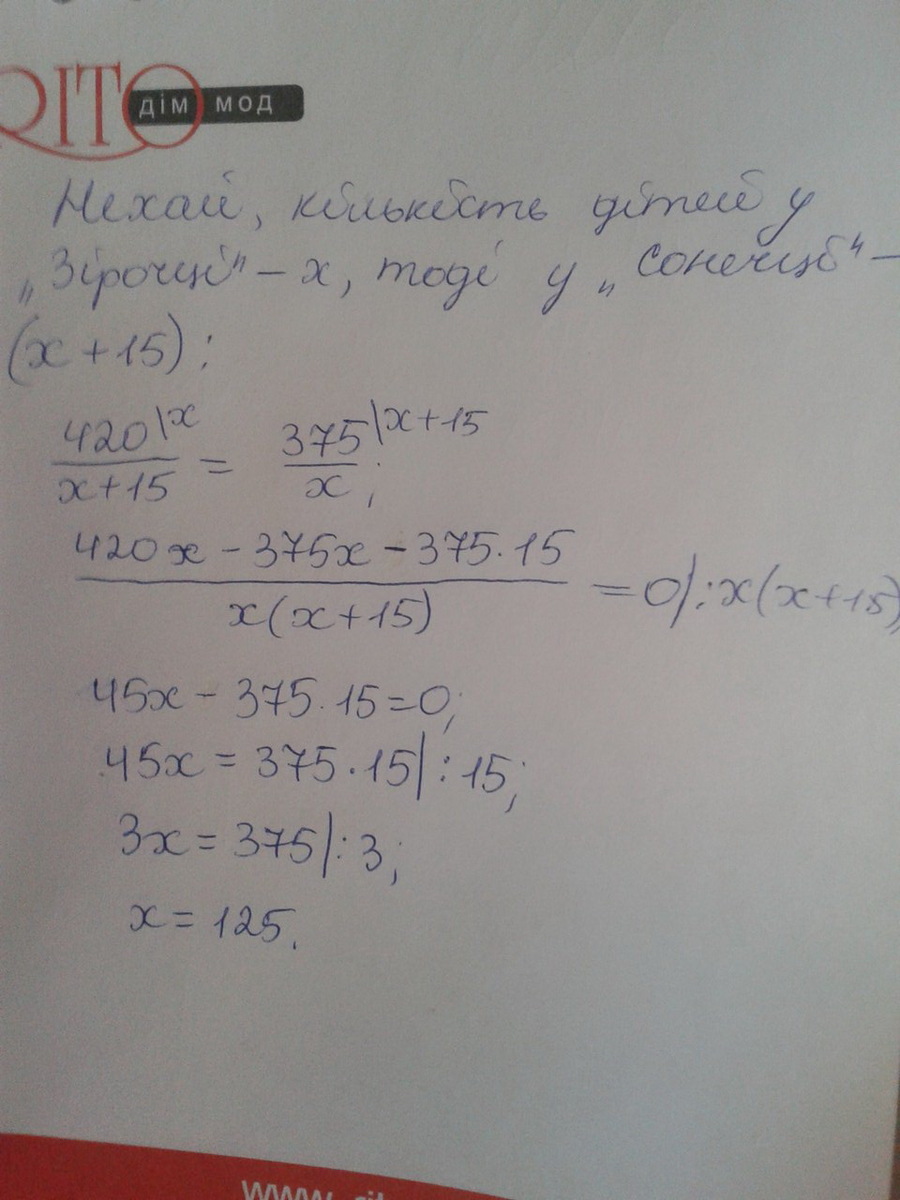 RITO
дім мод
Нехай, кількість дітей у
„Зірочці" – x, тоді у „Сонечці" –
(x + 15) ;
420\x / x+15 = 375\x+15 / x ;
420x - 375x - 375·15 / x(x+15) = 0/:x(x+15)
45x - 375·15=0;
45x = 375·15|:15;
3x = 375|:3;
x = 125.
www.rit